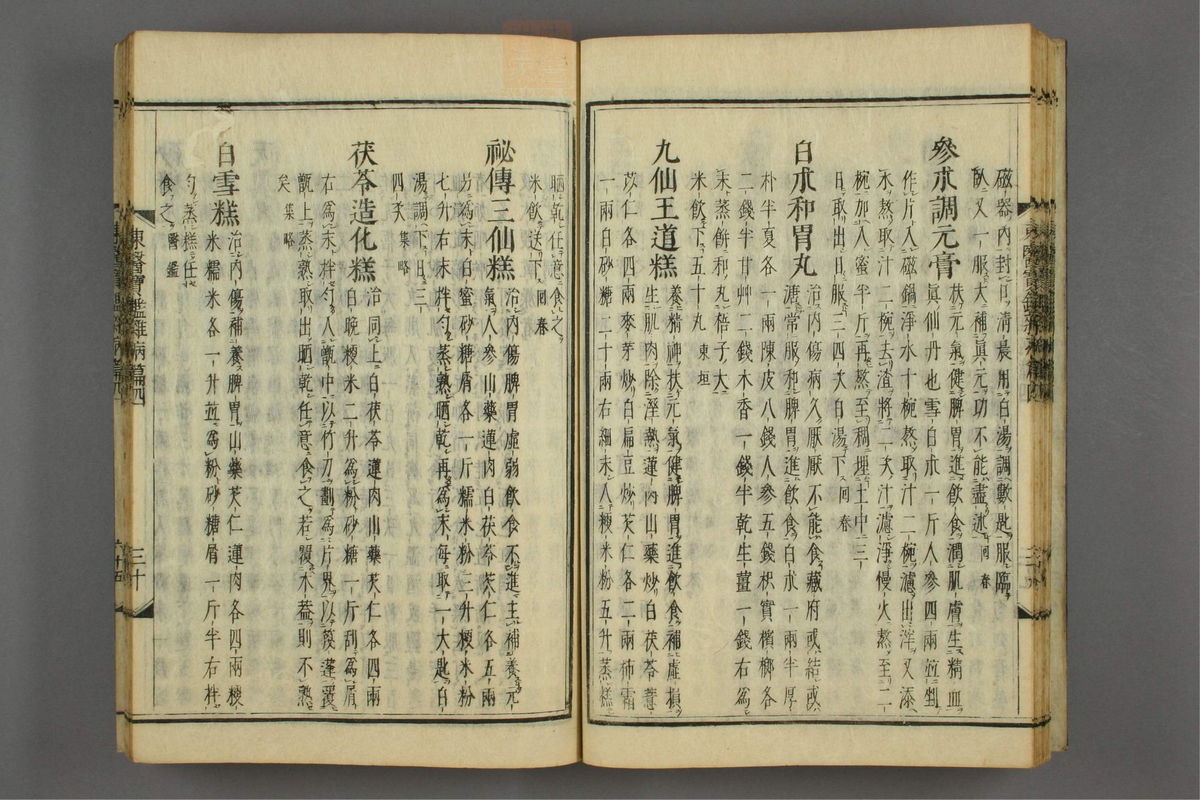 磁器內封口清晨用白湯調數匙服臨
臥又一服大補眞元功不能盡述 回春
參朮調元膏 扶元氣健脾胃進飮食潤肌膚生精血
眞仙丹也雪白朮一斤人參四兩並剉
作片入磁鍋淨水十椀熬取汁二椀濾出滓又添
水熬取汁二椀去渣將二次汁濾淨慢火熬至二
椀加入蜜半斤再熬至稠埋土中三
日取出日服三四次白湯下 回春
白朮和胃丸 治內傷病久厭厭不能食藏府或結或
溏常服和脾胃進飮食白朮一兩半厚
朴半夏各一兩陳皮八錢人參五錢枳實檳榔各
二錢半甘艸二錢木香一錢半乾生薑一錢右爲
末蒸餠和丸梧子大
米飮下五十丸 東垣
九仙王道糕 養精神扶元氣健脾胃進飮食補虛損
生肌肉除溼熱蓮肉山藥炒白茯苓薏
苡仁各四兩麥芽炒白扁豆炒芡仁各二兩柿霜
一兩白砂糖二十兩右細末入粳米粉五升蒸糕
晒乾任意食之
米飮送下 回春
祕傳三仙糕 治內傷脾胃虛弱飮食不進主補養元
氣人參山藥蓮肉白茯苓芡仁各五兩
右爲末白蜜砂糖屑各一斤糯米粉三升粳米粉
七升右末拌勻蒸熟晒乾再爲末每取一大匙白
湯調下日三
四次 集略
茯苓造化糕 治同上白茯苓蓮肉山藥芡仁各四兩
白晩粳米二升爲粉砂糖一斤刮爲屑
右爲末拌勻入甑中以竹刀劃爲片界以篛蓬覆
甑上蒸熟取出晒乾任意食之若覆木蓋則不熟
矣 集略
白雪糕 治內傷補養脾胃山藥芡仁蓮肉各四兩粳
米糯米各一升並爲粉砂糖屑一斤半右拌
勻蒸糕任
食之 醫鑑
東醫寶鑑雜病篇四
三十